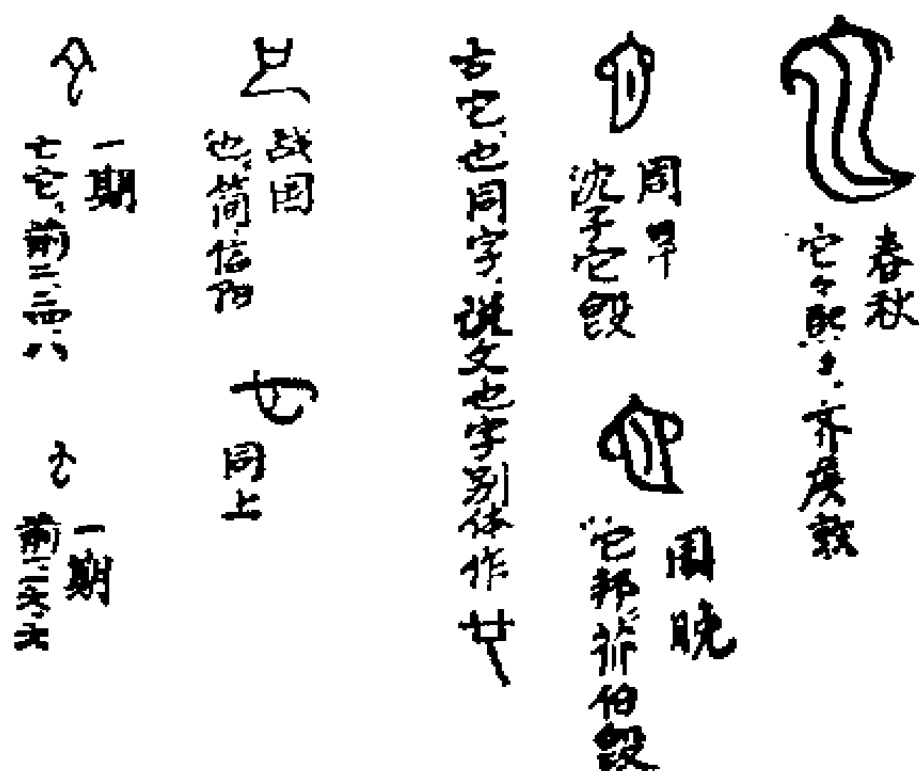 春秋
它々熙々、齐侯敦
周早
沈子它𣪘
周晚
它邦 伯𣪘
古它、也同字,说文也字别体作
战国
也,简,信阳
同上
一期
它,前二、二四、八
一期
前二